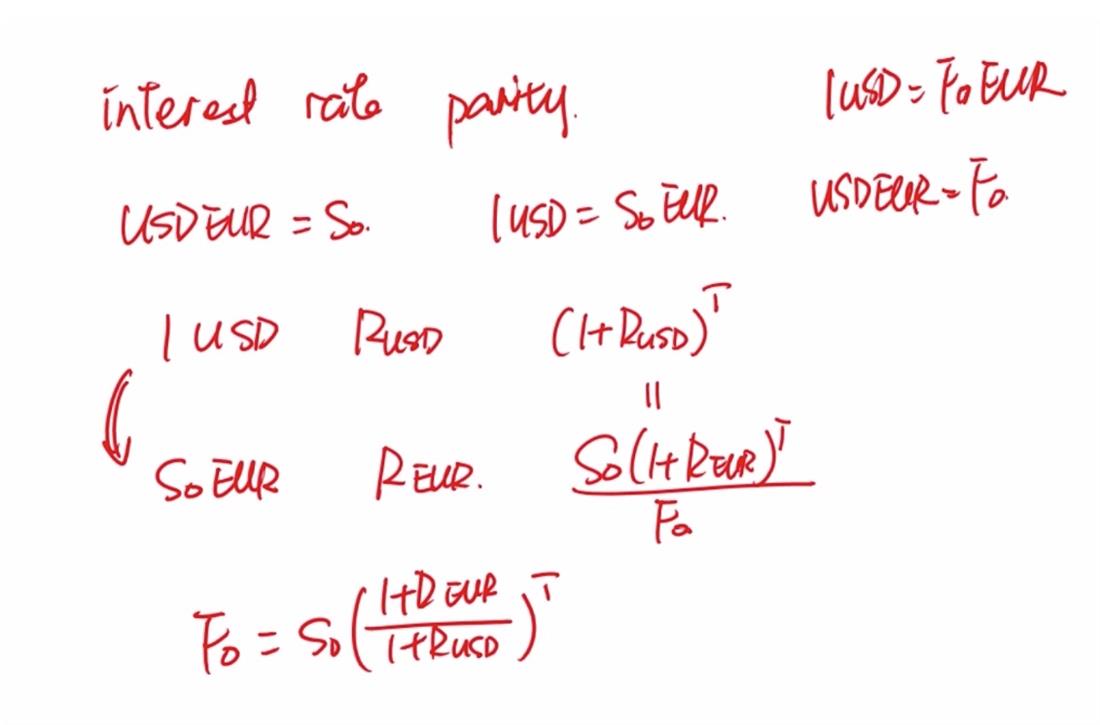 interest rate parity. 1 USD = F₀ EUR
USDEUR = S₀. 1 USD = S₀ EUR. USDEUR = F₀.
1 USD R_USD (1+R_USD)^T
=
S₀ EUR R_EUR. S₀(1+R_EUR)^T / F₀
F₀ = S₀((1+R_EUR)/(1+R_USD))^T